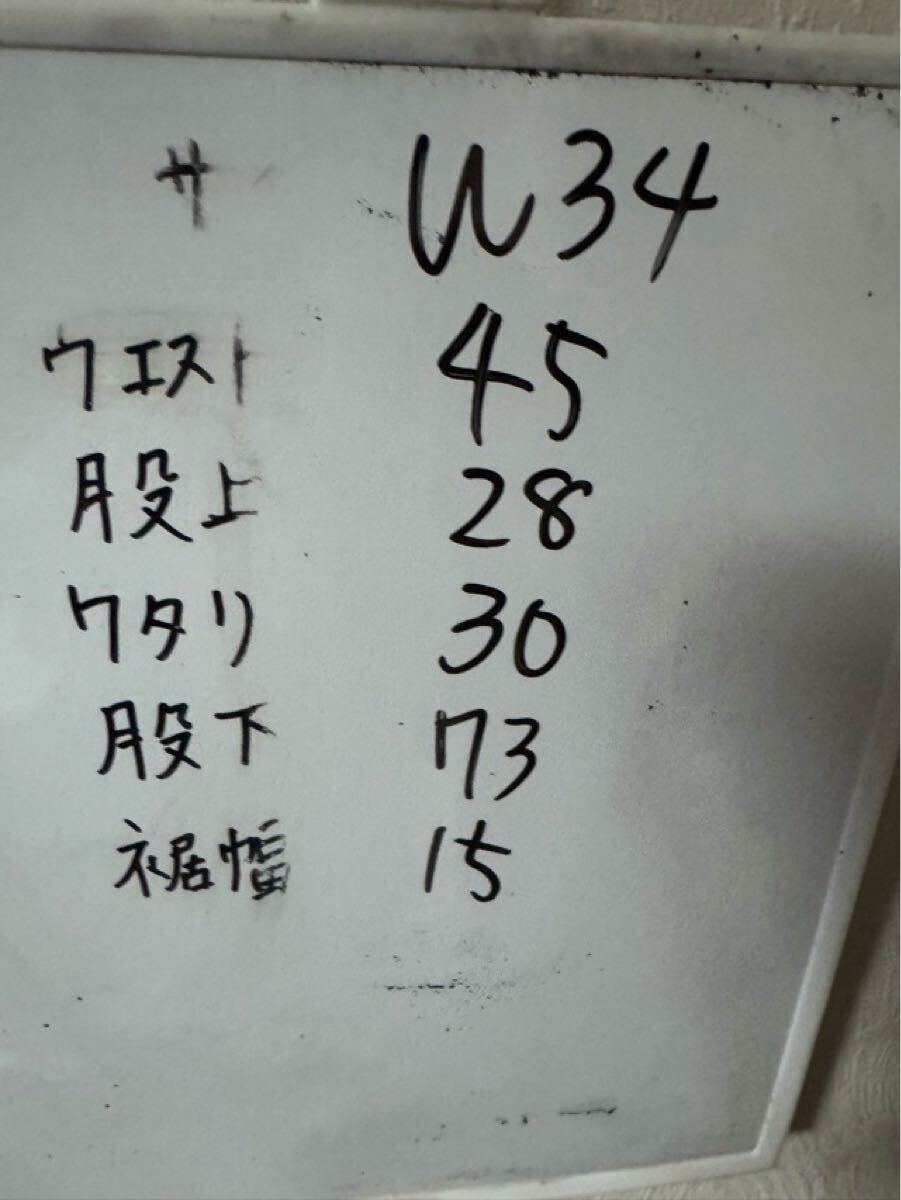 サ W34
ウエスト 45
股上 28
ワタリ 30
股下 73
裾幅 15